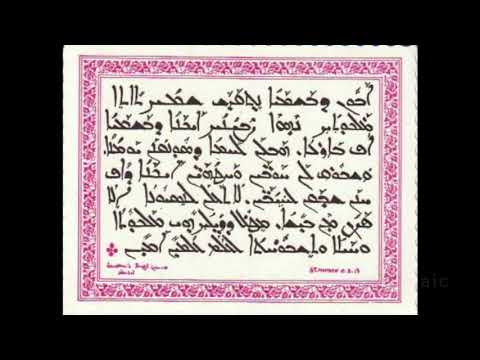 ܐܒܘܢ ܕܒܫܡܝܐ ܢܬܩܕܫ ܫܡܟ ܬܐܬܐ
ܡܠܟܘܬܟ ܢܗܘܐ ܨܒܝܢܟ ܐܝܟܢܐ ܕܒܫܡܝܐ
ܐܦ ܒܐܪܥܐ. ܗܒ ܠܢ ܠܚܡܐ ܕܣܘܢܩܢܢ ܝܘܡܢܐ
ܘܫܒܘܩ ܠܢ ܚܘܒܝܢ ܘܚܛܗܝܢ ܐܝܟܢܐ ܕܐܦ
ܚܢܢ ܫܒܩܢ ܠܚܝܒܝܢ. ܠܐ ܬܥܠܢ ܠܢܣܝܘܢܐ ܐܠܐ
ܦܨܢ ܡܢ ܒܝܫܐ. ܡܛܠ ܕܕܝܠܟ ܗܝ ܡܠܟܘܬܐ
ܘܚܝܠܐ ܘܬܫܒܘܚܬܐ ܠܥܠܡ ܥܠܡܝܢ ܐܡܝܢ
aic